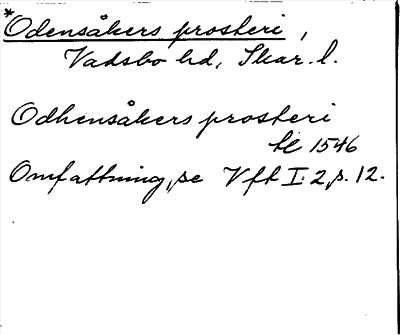 *Odensåkers prosteri,
Vadsbo hd, Skar. l.
Odhensåkers prosteri
1546
Omfattning, se Vft I:2, s. 12.